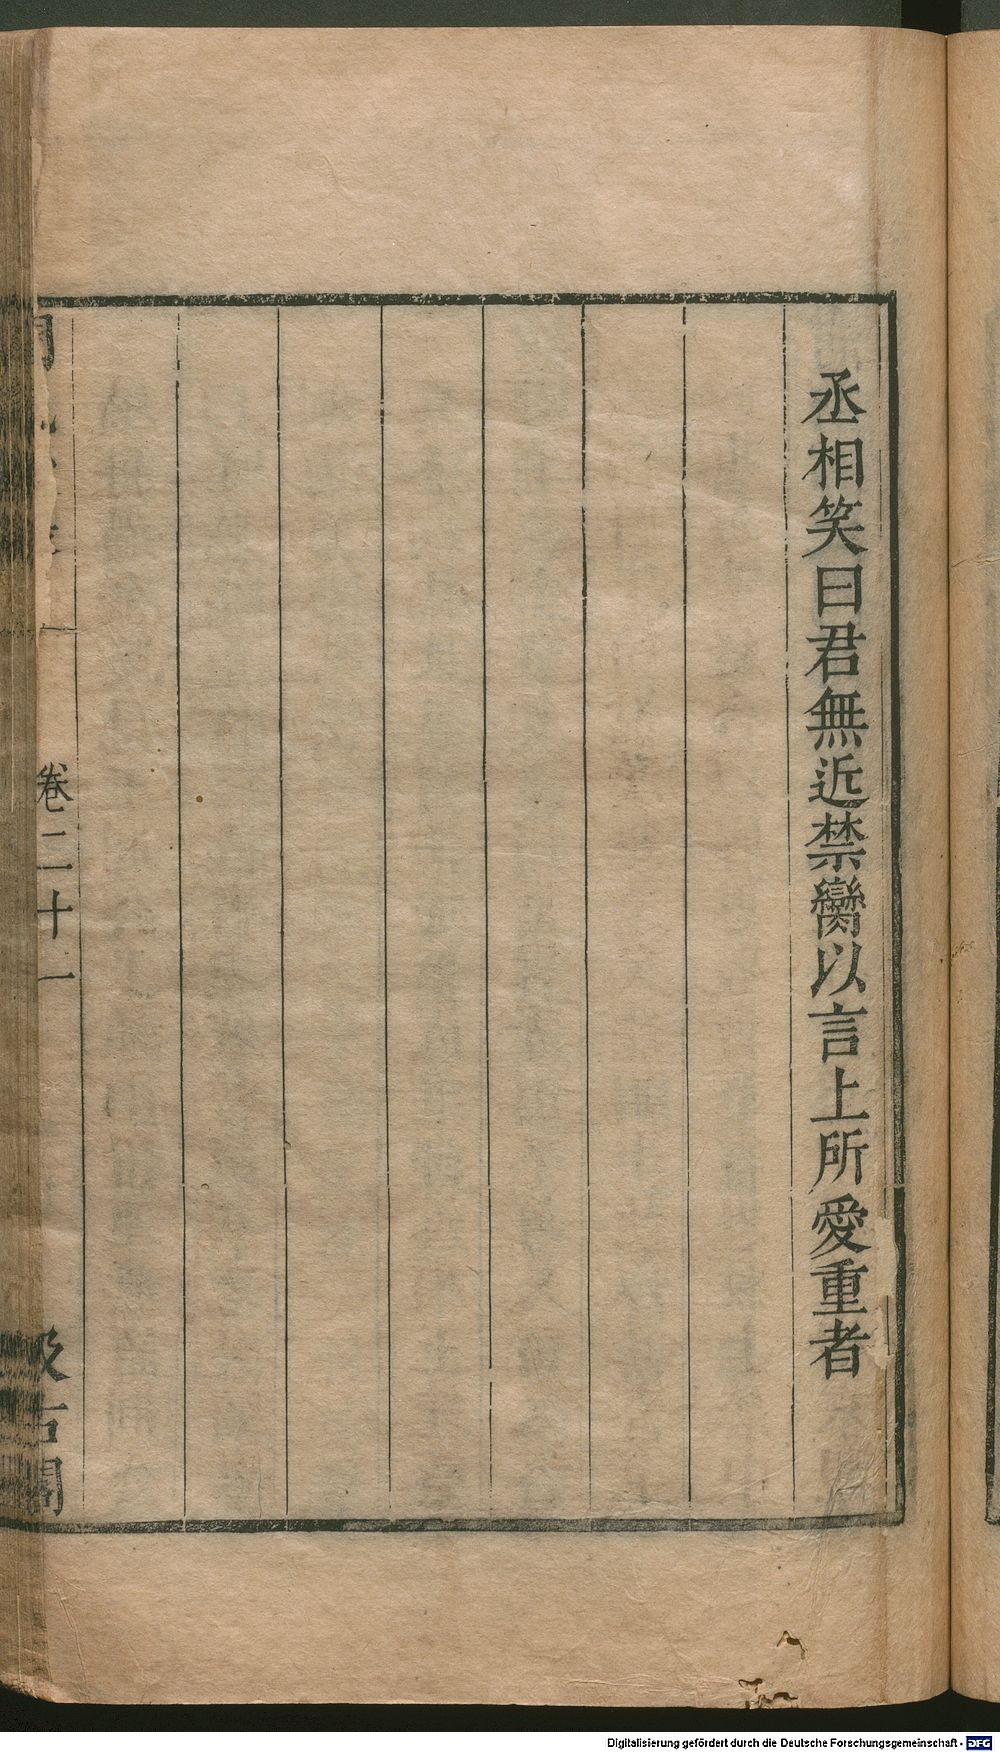 丞相笑曰君無近禁臠以言上所愛重者
卷二十一
汲古閣
Digitalisierung gefördert durch die Deutsche Forschungsgemeinschaft - DFG